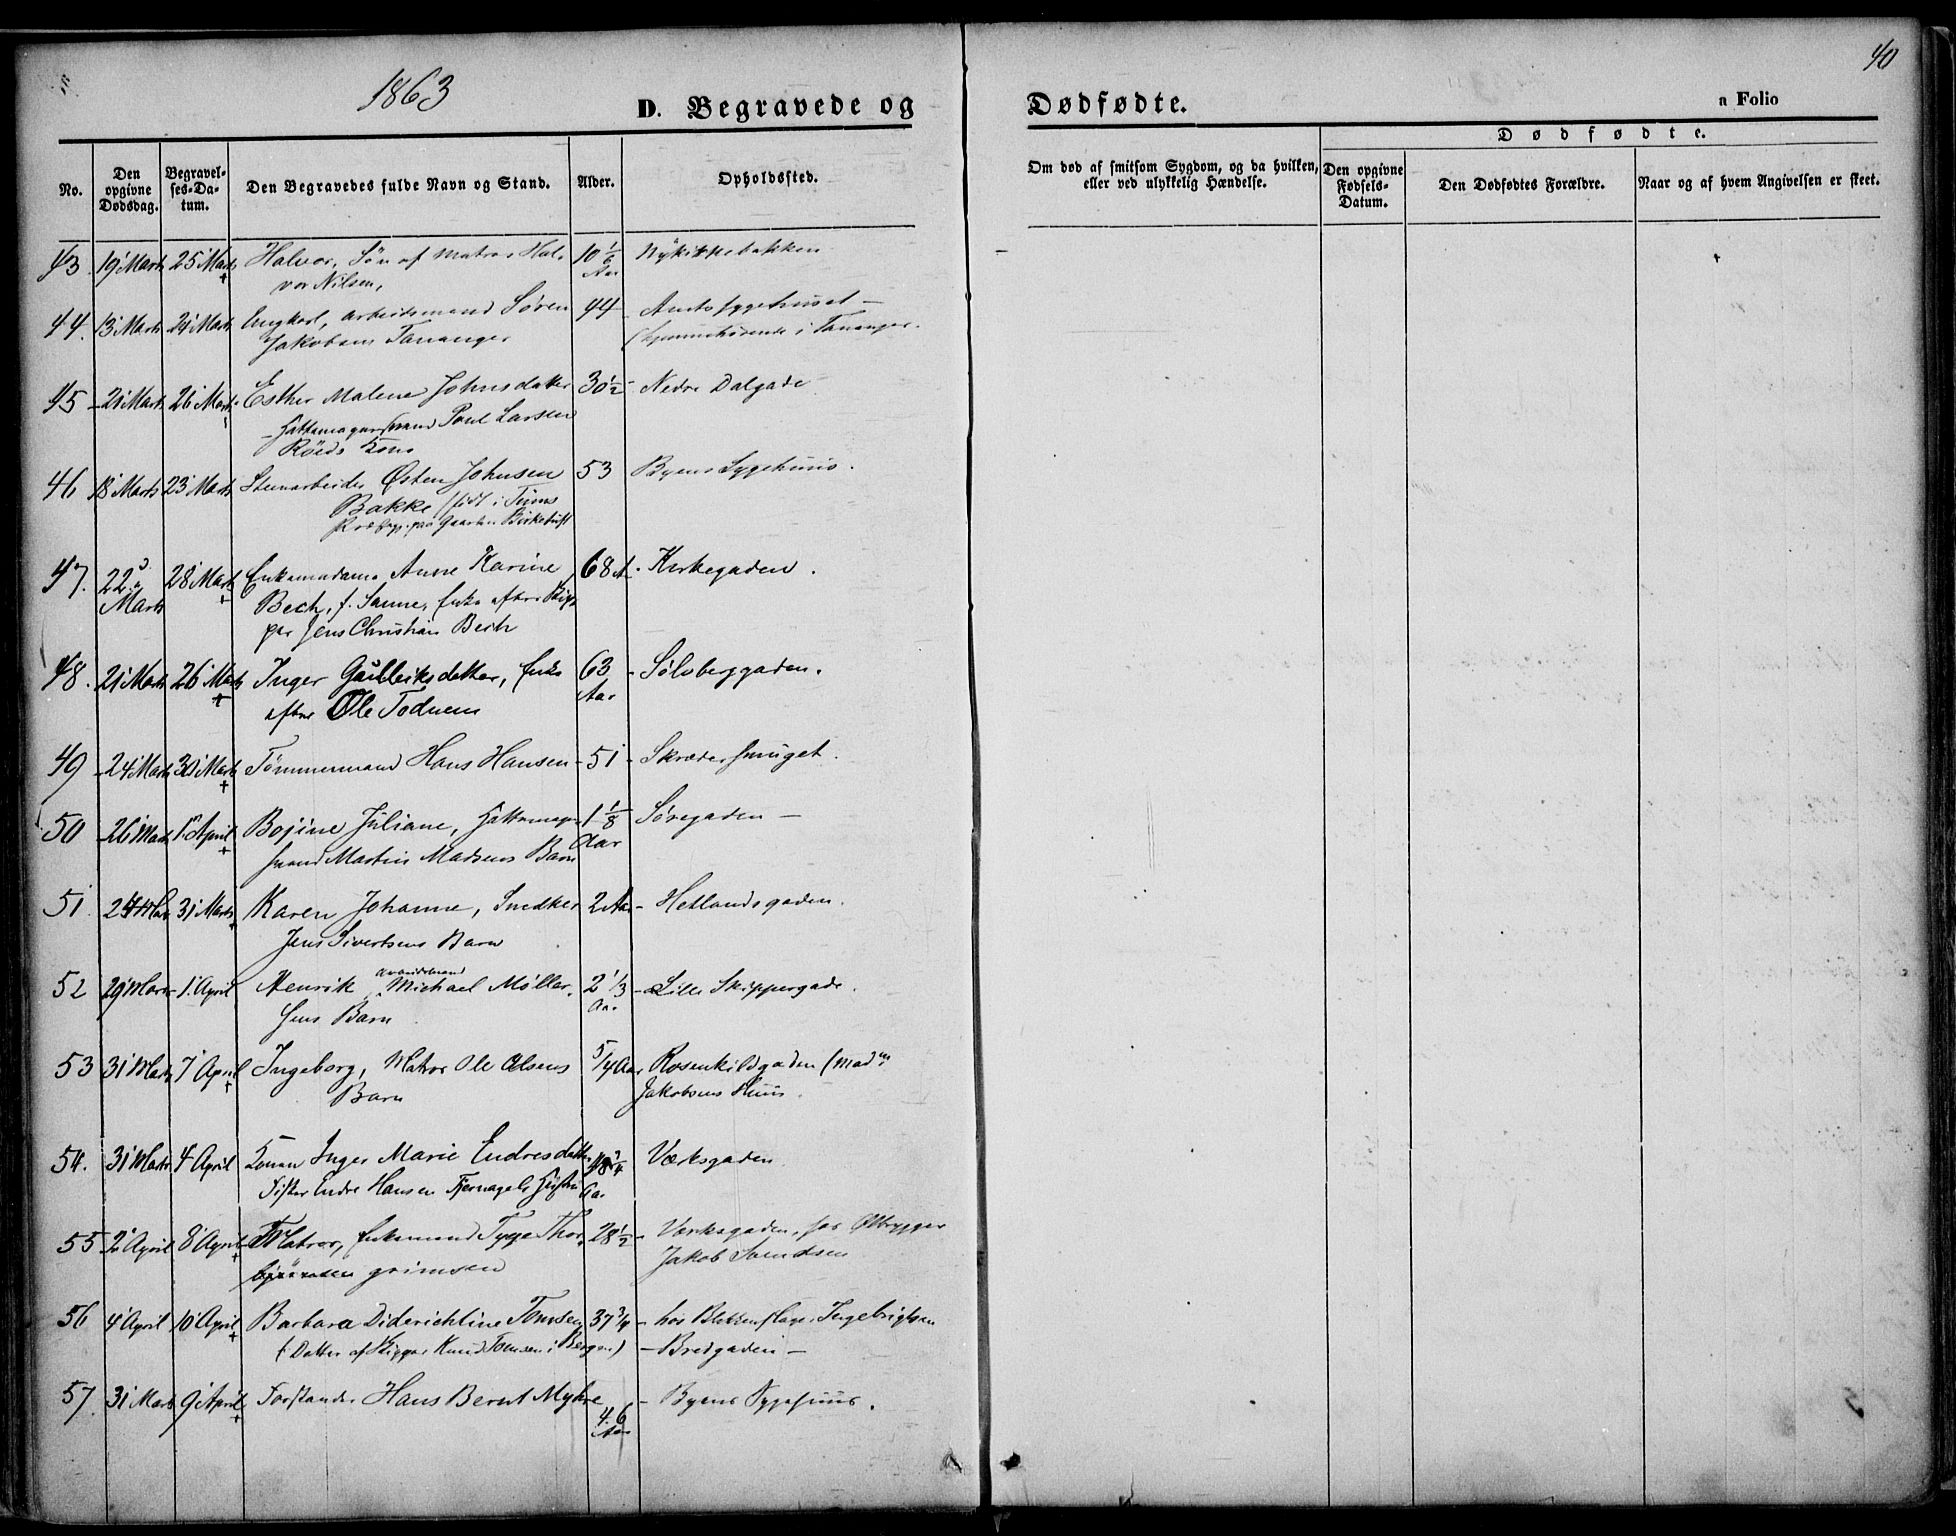 1863
40
D. Begravede og Dødfødte.
n Folio
No.
Den opgivne Dødsdag.
Begravelses-Datum.
Den Begravedes fulde Navn og Stand.
Alder.
Opholdssted.
Om død af smitsom Sygdom, og da hvilken, eller ved ulykkelig Hændelse.
Dødfødte.
Den opgivne Fødsels-Datum.
Den Dødfødtes Forældre.
Naar og af hvem Angivelsen er skeet.
43. 19 Marts 25 Marts Halvor, Søn af Matros Hal-
vor Nilsen, 10 1/6 Aar
44. 13 Marts 21 Marts Ungkarl, arbeidsmand Søren 44 Amtssygehuset –
Jakobsen Tananger (hjemmehørende i Tananger.
45 21 Marts 26 Marts Esther Malene Johnsdatter 30 1/2 Nedre Dalgade
Hattemagersvend Poul Larsen
Röeds Kone
46 18 Marts 23 Marts Steenarbeider Østen Johnsen 53 Byens Sygehuus.
Bakke, født i Tinns
Præstegj. paa Gaarden
47. 22 Marts 28 Marts Enkemadame Anne Karine 68 A. Kirkegaden.
Bech, f. Sanne, Enke efter Skip-
per Jens Christian Bech
48. 21 Marts 26 Marts Inger Gulleiksdatter, Enke 63 Aar – Sølvberggaden.
efter Ole Todnem
49 24 Marts 30 Marts Tømmermand Hans Hansen – 51 – Skrædersmuget.
50 26 Marts 1 April Bojine Juliane, Hattemager- 1 1/8 Aar Søregaden –
svend Martin Madsens Barn
51. 24 Mar 31 Marts Karen Johanne, Snedker 2 Aar – Hetlandsgaden.
Jens Sivertsens Barn
52 29 Marts 1. April Henrik, Arbeidsmand Michael Møller- 2 1/3 Aar – Lille Skippergade.
sens Barn
53 31 Marts 7 April Ingeborg, Matros Ole Olsens 5/4 Aar Rosenkildgaden (Madm
Barn Jakobsens Huus.
54. 31 Marts 4 April Konen Inger Marie Endresdatter 48 3/4 Aar Værksgaden
Fisker Endre Hansen Fjernagels Hustru
55 2 April 8 April Matros, Enkemand Tygge Thor- 28 1/2 – Værksgaden, hos Ølbrygger
grimsen Jakob Svendsen
56 4 April 10 April Barbara Diderichline Tomsen 37 3/4 – hos Blikkenslager Ingebrigtsen
(Datter af Skipper Knud Tomsen i Bergen) – Bredgaden –
57. 31 Marts 9 April Forstander Hans Bernt Myhre 46 Aar – Byens Sygehuus.